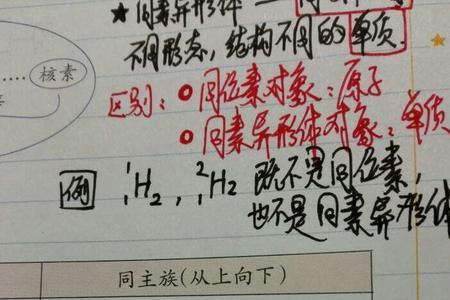 ★同素异形体 —
不同形态,结构不同的单质.
…… 核素
区别:同位素对象:原子
同素异形体对象:单质
例 ¹H₂,²H₂ 既不是同位素,
也不是同素异形体
同主族(从上向下)